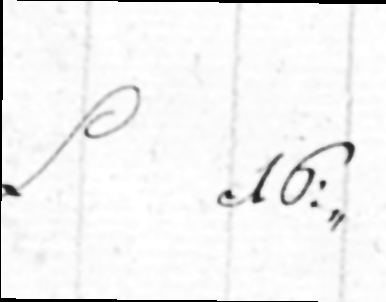 16:„